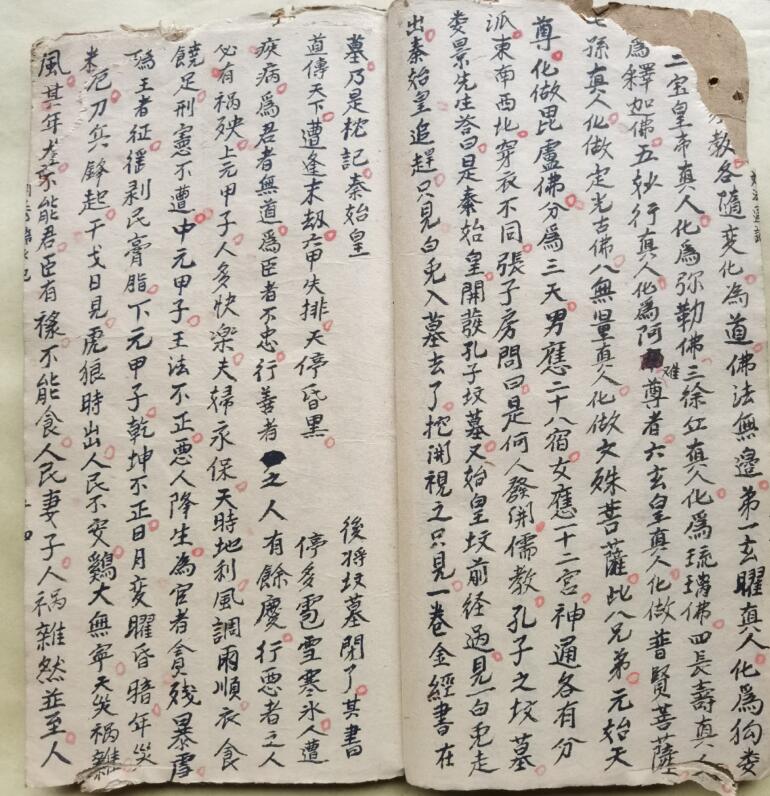 教各隨变化為道佛法無邊第一玄曜真人化為狗娄
二宝皇帝真人化為弥勒佛三徐红真人化為琉璃佛四長壽真人
為釋加佛五妙行真人化為阿难尊者六玄皇真人化做普賢菩薩
七孫真人化做定光古佛八無量真人化做文殊菩薩此八兄弟元始天
尊化做毘盧佛分為三天男應二十八宿女應一十二宫神通各有分
派東南西北穿衣不同張子房問曰是何人發開儒教孔子之坟墓
娄景先生答曰是秦始皇開發孔子坟墓又始皇坟前经過見一白兎走
出秦始皇追趕只見白兎入墓去了挖開視之只見一卷金經書在
墓乃是枕記秦始皇 後将坟墓閉了其書
道傳天下遭逢末劫六甲失排天停昏黑 停多雹雪寒氷人遭
疾病為君者無道為臣者不忠行善者之人有餘慶行恶者之人
必有祸殃上元甲子人多快楽夫婦永保天時地利風調雨順衣食
饒足刑憲不遭中元甲子王法不正恶人降生為官者貪殘暴虐
為王者征徭剥民膏脂下元甲子乾坤不正日月变曜昏暗年災
米厄刀兵鋒起干戈日見虎狼時出人民不安鷄犬無寧天災祸雜
風其年不能君臣有禄不能食人民妻子人祸雜然並至人